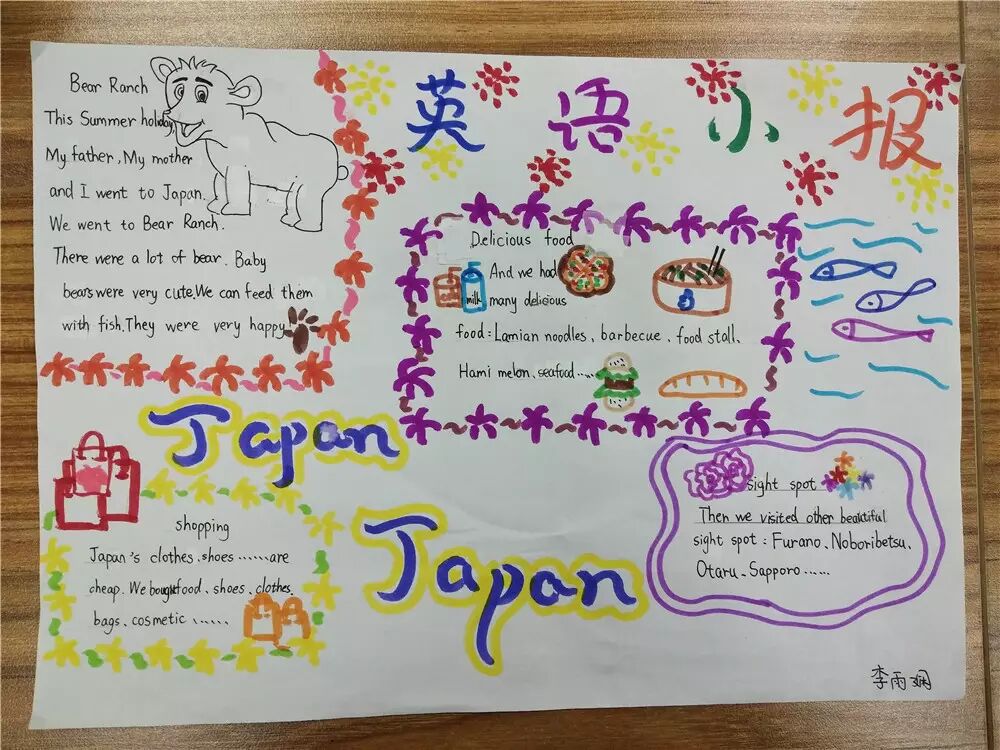 英语小报
Bear Ranch
This Summer holiday
My father, My mother
and I went to Japan.
We went to Bear Ranch.
There were a lot of bear. Baby
bears were very cute. We can feed them
with fish. They were very happy
Delicious food
And we had
milk
many delicious
food: Lamian noodles、barbecue、food stall、
Hami melon、seafood……
Japan
shopping
Japan's clothes、shoes ……are
cheap. We bought food、shoes、clothes、
bags、cosmetic ……
Japan
sight spot
Then we visited other beautiful
sight spot: Furano、Noboribetsu、
Otaru、Sapporo……
李雨